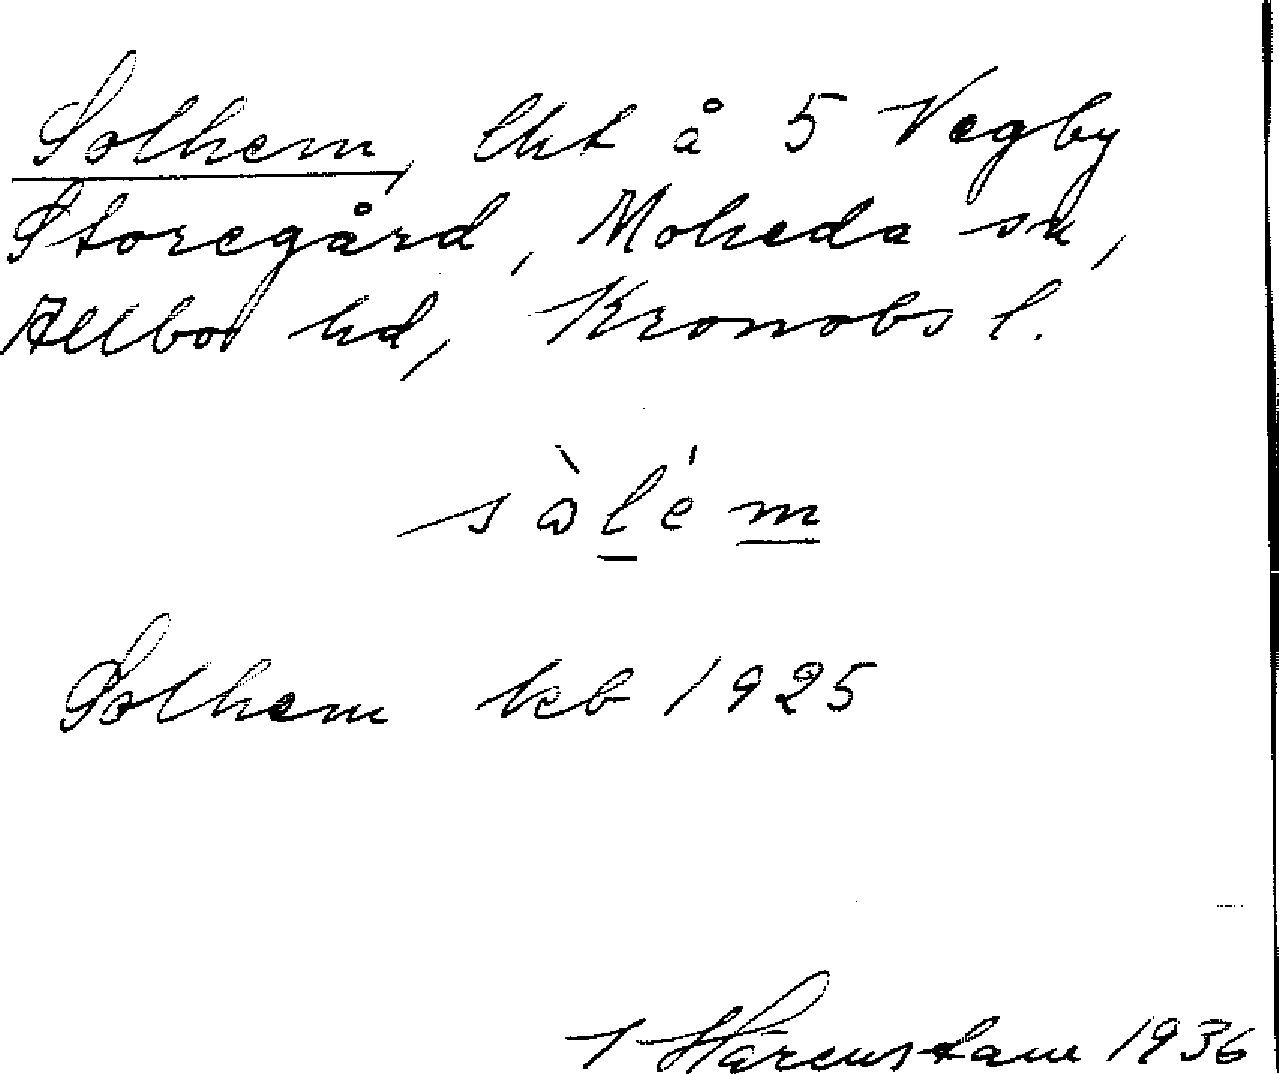 Solhem, lht å 5 Vegby
Storegård, Moheda sn,
Allbo hd, Kronobs l.
sὼlém
Solhem kb 1925
I Härenstam 1936